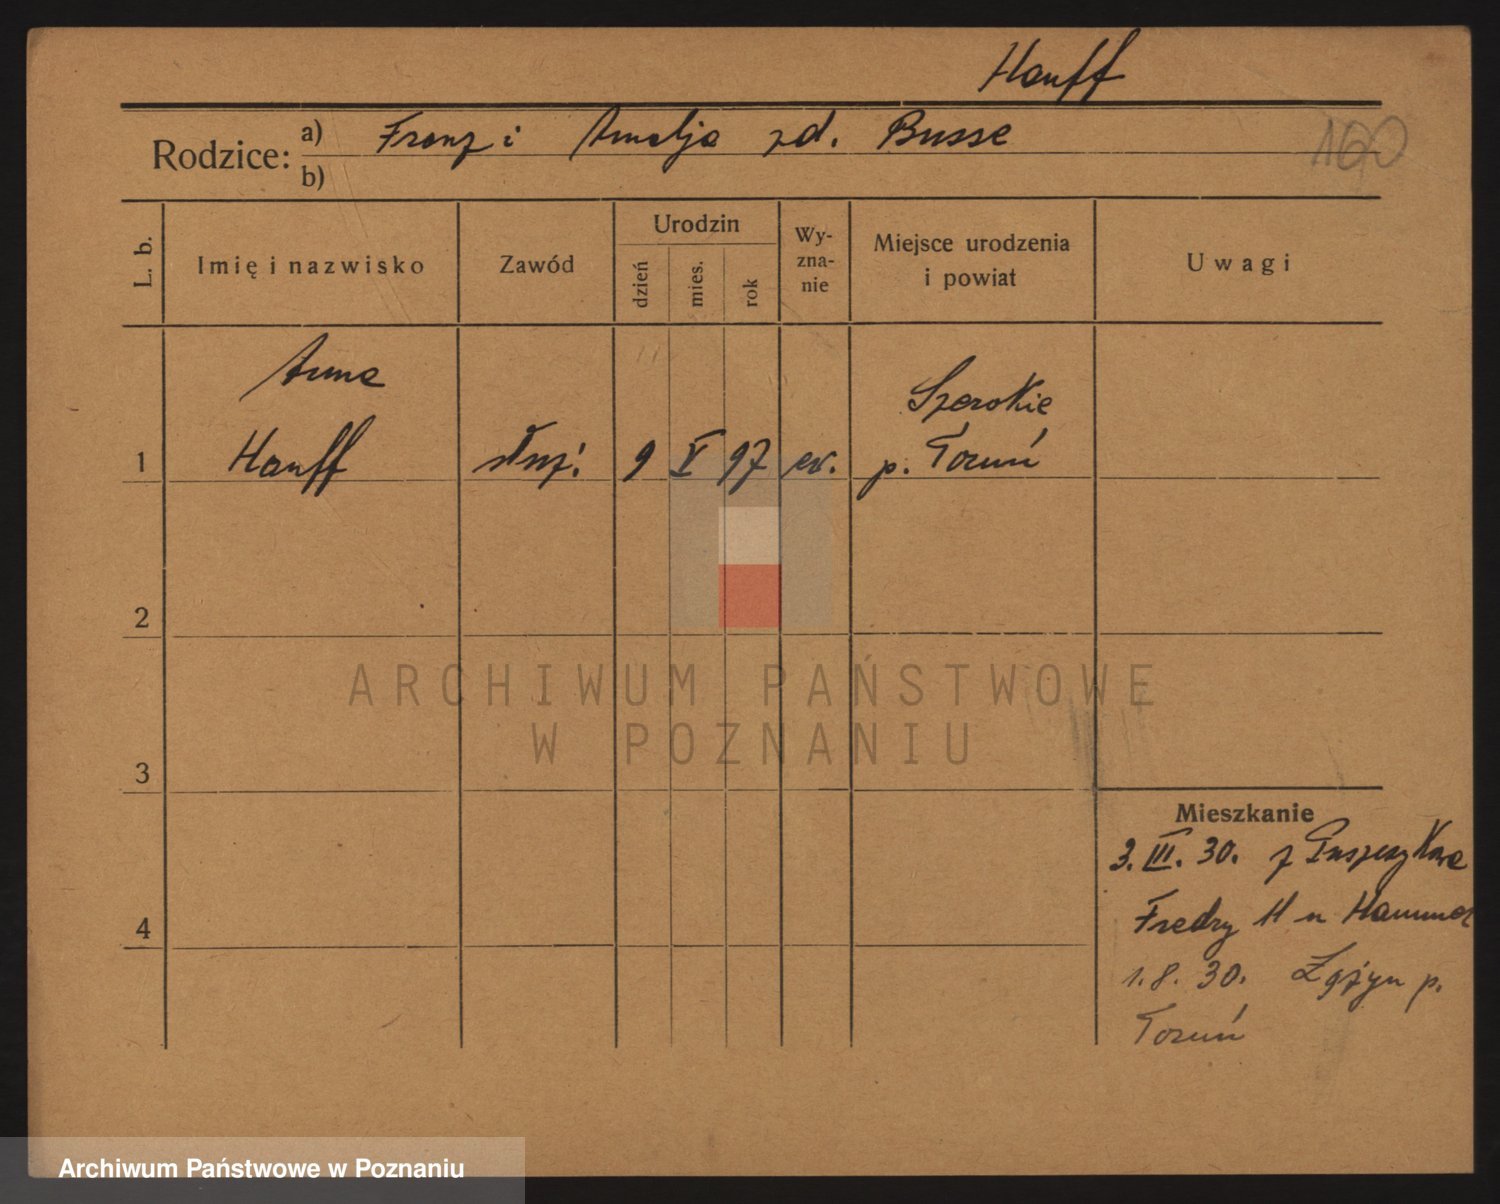 Hauff
Rodzice:
a) Franz i Amalja zd. Busse
160
b)
L. b.
Imię i nazwisko
Zawód
Urodzin
dzień
mies.
rok
Wy-
zna-
nie
Miejsce urodzenia
i powiat
Uwagi
Anna
Szerokie
1 Hauff służ. 9 V 97 ew. p. Toruń
2
ARCHIWUM PAŃSTWOWE
W POZNANIU
3
Mieszkanie
3. III. 30. z
4
Fredry 11 u Hammer
1. 8. 30. p.
Toruń
Archiwum Państwowe w Poznaniu